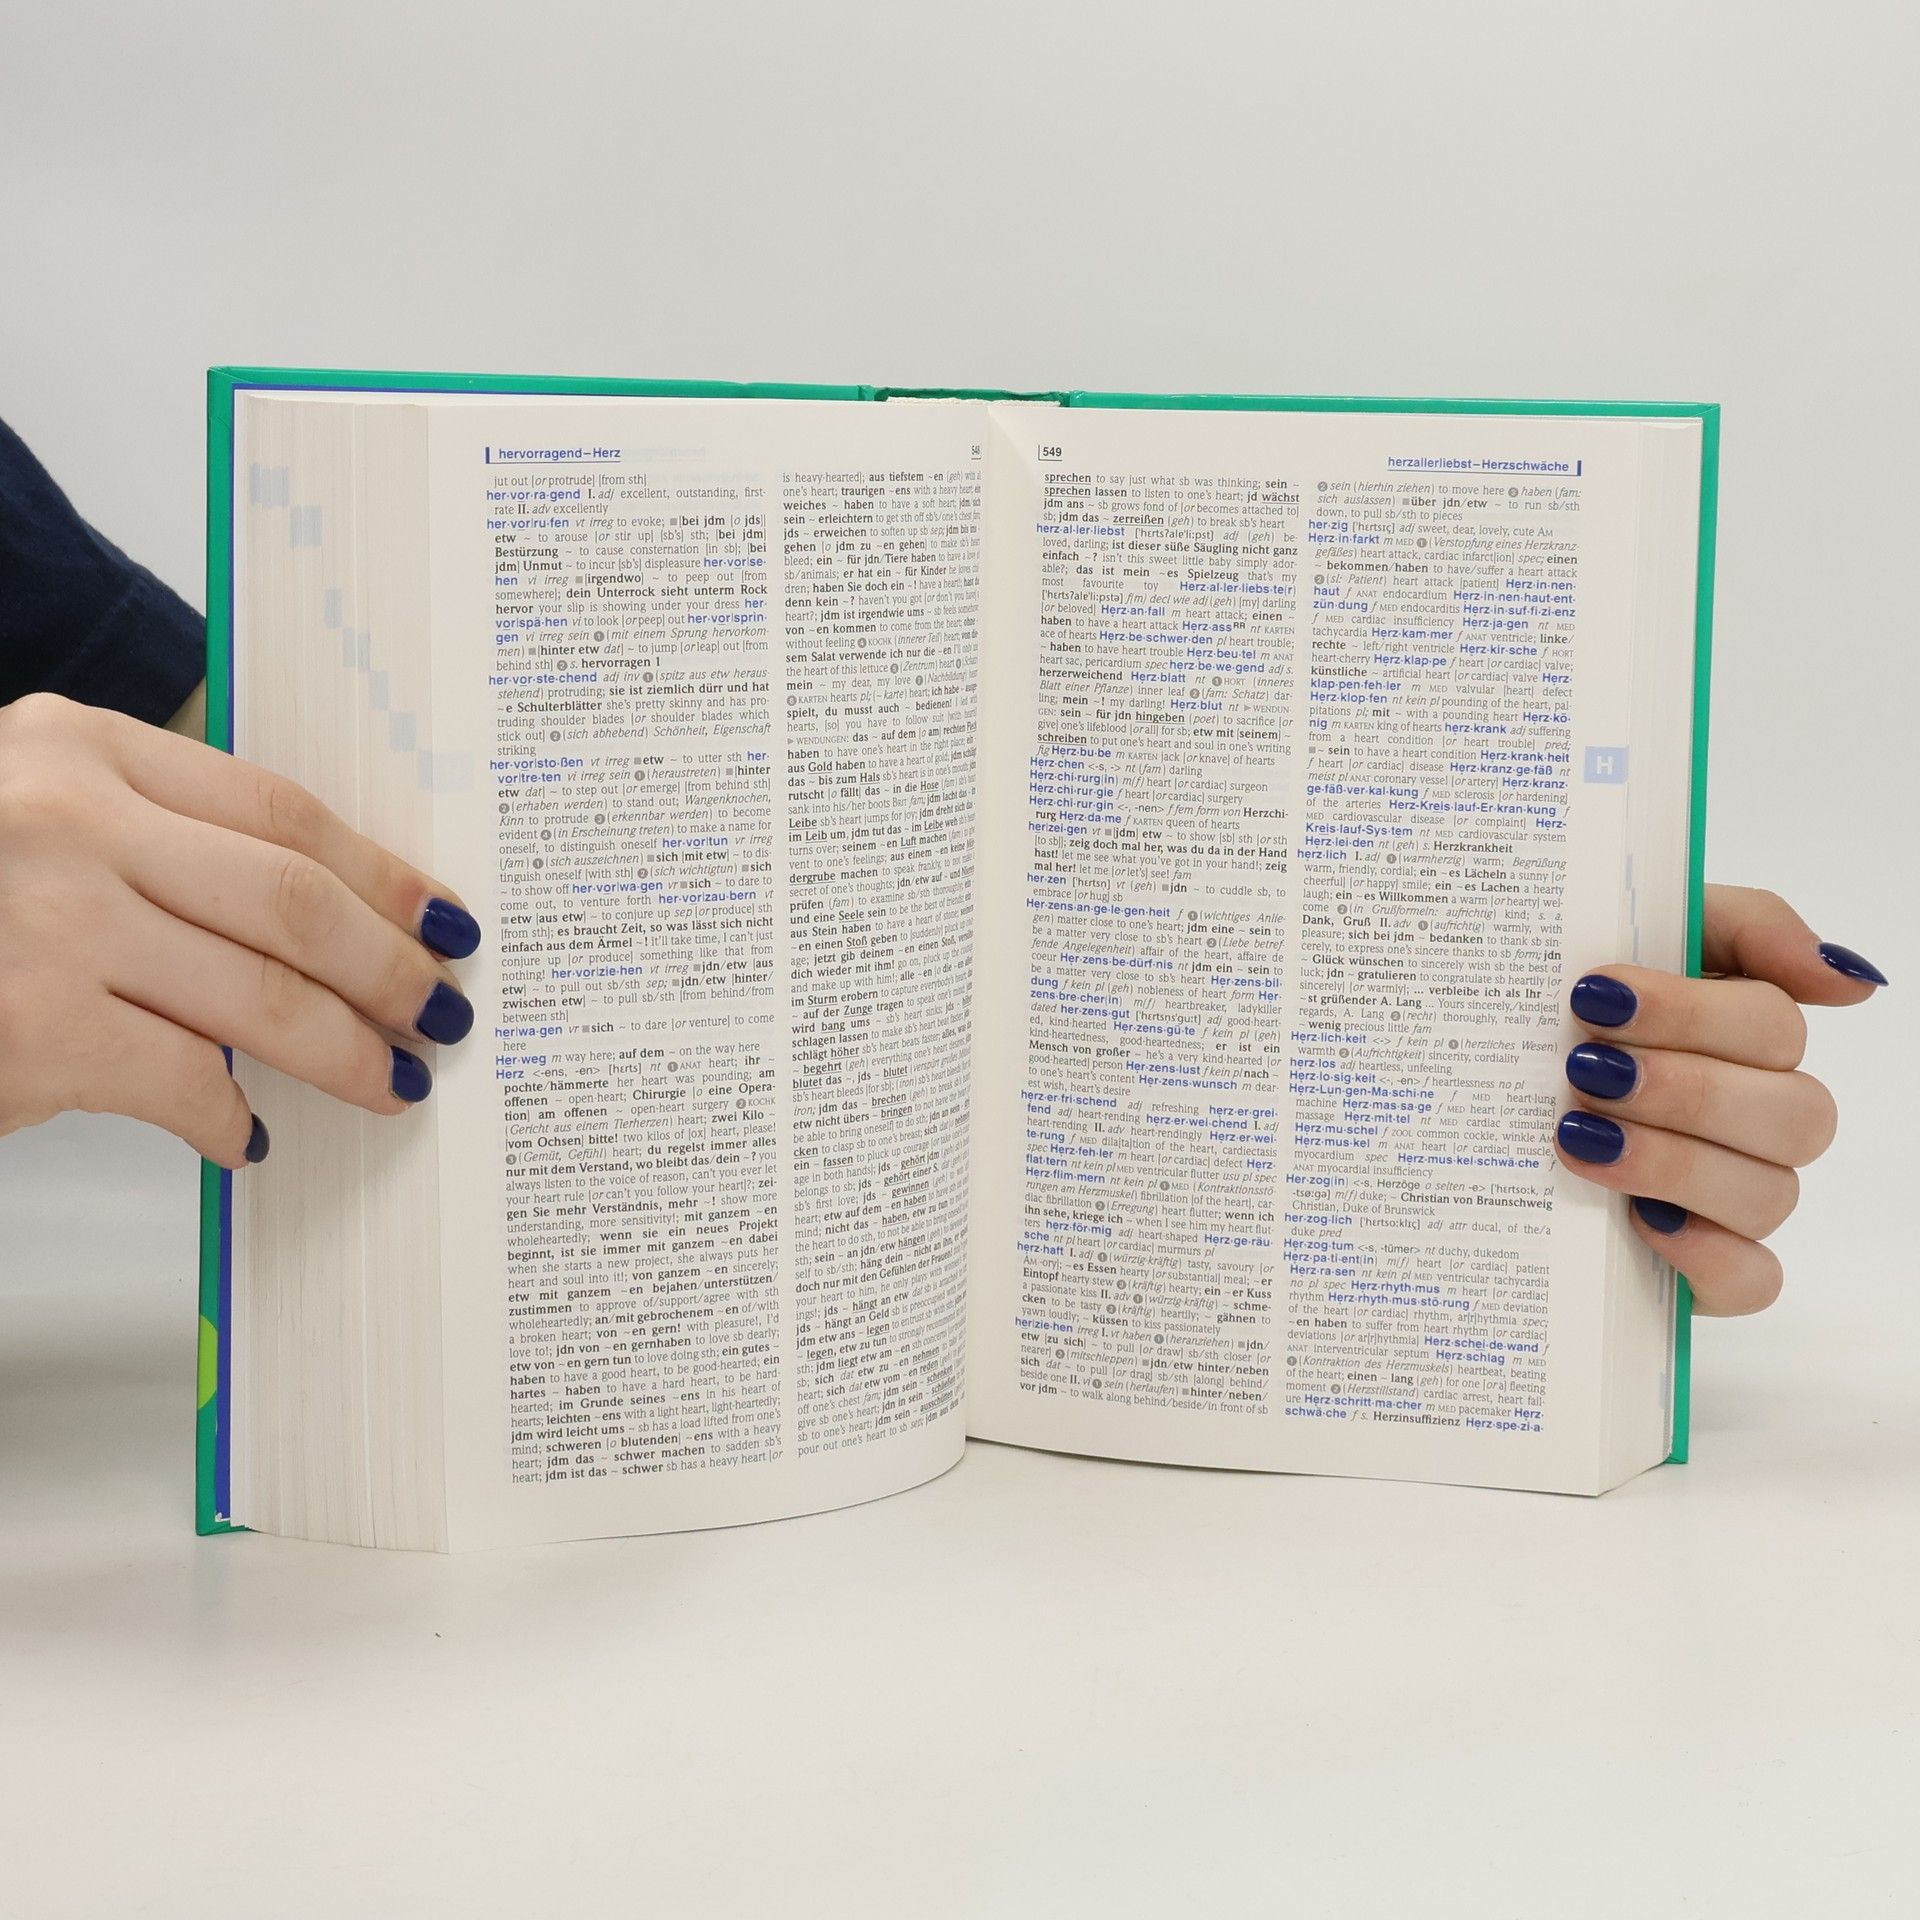 hervorragend–Herz
548
jut out [or protrude] [from sth]
her·vor·ra·gend I. adj excellent, outstanding, first-
rate II. adv excellently
her·vor|ru·fen vt irreg to evoke; ■[bei jdm [o jds]]
etw ~ to arouse [or stir up] [sb's] sth; [bei jdm]
Bestürzung ~ to cause consternation [in sb]; [bei
jdm] Unmut ~ to incur [sb's] displeasure her·vor|se-
hen vi irreg ■[irgendwo] ~ to peep out [from
somewhere]; dein Unterrock sieht unterm Rock
hervor your slip is showing under your dress her-
vor|spä·hen vi to look [or peep] out her·vor|sprin-
gen vi irreg sein ❶ (mit einem Sprung hervorkom-
men) ■[hinter etw dat] ~ to jump [or leap] out [from
behind sth] ❷ s. hervorragen 1
her·vor·ste·chend adj inv ❶ (spitz aus etw heraus-
stehend) protruding; sie ist ziemlich dürr und hat
~e Schulterblätter she's pretty skinny and has pro-
truding shoulder blades [or shoulder blades which
stick out] ❷ (sich abhebend) Schönheit, Eigenschaft
striking
her·vor|sto·ßen vt irreg ■etw ~ to utter sth her-
vor|tre·ten vi irreg sein ❶ (heraustreten) ■[hinter
etw dat] ~ to step out [or emerge] [from behind sth]
❷ (erhaben werden) to stand out; Wangenknochen,
Kinn to protrude ❸ (erkennbar werden) to become
evident ❹ (in Erscheinung treten) to make a name for
oneself, to distinguish oneself her·vor|tun vr irreg
(fam) ❶ (sich auszeichnen) ■sich [mit etw] ~ to dis-
tinguish oneself [with sth] ❷ (sich wichtigtun) ■sich
~ to show off her·vor|wa·gen vr ■sich ~ to dare to
come out, to venture forth her·vor|zau·bern vt
■etw [aus etw] ~ to conjure up sep [or produce] sth
[from sth]; es braucht Zeit, so was lässt sich nicht
einfach aus dem Ärmel ~! it'll take time, I can't just
conjure up [or produce] something like that from
nothing! her·vor|zie·hen vt irreg ■jdn/etw [aus
etw] ~ to pull out sb/sth sep; ■jdn/etw [hinter/
zwischen etw] ~ to pull sb/sth [from behind/from
between sth]
her|wa·gen vr ■sich ~ to dare [or venture] to come
here
Her·weg m way here; auf dem ~ on the way here
Herz <-ens, -en> [hɛrts] nt ❶ ANAT heart; ihr ~
pochte/hämmerte her heart was pounding; am
offenen ~ open-heart; Chirurgie [o eine Opera-
tion] am offenen ~ open-heart surgery ❷ KOCHK
(Gericht aus einem Tierherzen) heart; zwei Kilo ~
[vom Ochsen] bitte! two kilos of [ox] heart, please!
❸ (Gemüt, Gefühl) heart; du regelst immer alles
nur mit dem Verstand, wo bleibt das/dein ~? you
always listen to the voice of reason, can't you ever let
your heart rule [or can't you follow your heart]?; zei-
gen Sie mehr Verständnis, mehr ~! show more
understanding, more sensitivity!; mit ganzem ~en
wholeheartedly; wenn sie ein neues Projekt
beginnt, ist sie immer mit ganzem ~en dabei
when she starts a new project, she always puts her
heart and soul into it!; von ganzem ~en sincerely;
etw mit ganzem ~en bejahen/unterstützen/
zustimmen to approve of/support/agree with sth
wholeheartedly; an/mit gebrochenem ~en of/with
a broken heart; von ~en gern! with pleasure!, I'd
love to!; jdn von ~en gernhaben to love sb dearly;
etw von ~en gern tun to love doing sth; ein gutes ~
haben to have a good heart, to be good-hearted; ein
hartes ~ haben to have a hard heart, to be hard-
hearted; im Grunde seines ~ens in his heart of
hearts; leichten ~ens with a light heart, light-heartedly;
jdm wird leicht ums ~ sb has a load lifted from one's
mind; schweren [o blutenden] ~ens with a heavy
heart; jdm das ~ schwer machen to sadden sb's
heart; jdm ist das ~ schwer sb has a heavy heart [or
is heavy-hearted]; aus tiefstem ~en (geh) with all
one's heart; traurigen ~ens with a heavy heart; ein
weiches ~ haben to have a soft heart; jdm
sein ~ erleichtern to get sth off sb's/one's chest fam;
jds ~ erweichen to soften up sb sep; jdm bis ins
gehen [o jdm zu ~en gehen] to make sb's heart
bleed; ein ~ für jdn/Tiere haben to have a love of
sb/animals; er hat ein ~ für Kinder he loves chil-
dren; haben Sie doch ein ~! have a heart!; hast du
denn kein ~? haven't you got [or don't you have] a
heart?; jdm ist irgendwie ums ~ sb feels somehow
von ~en kommen to come from the heart; ohne
without feeling ❹ KOCHK (innerer Teil) heart; von die-
sem Salat verwende ich nur die ~en I'll only
the heart of this lettuce ❺ (Zentrum) heart ❻ (Schatz)
mein ~ my dear, my love ❼ (Nachbildung) heart
❽ KARTEN hearts pl; (~karte) heart; ich habe ~ ausge-
spielt, du musst auch ~ bedienen! I led with
hearts, [so] you have to follow suit [with hearts]
▶ WENDUNGEN: das ~ auf dem [o am] rechten Fleck
haben to have one's heart in the right place; ein ~
aus Gold haben to have a heart of gold; jdm schlägt
das ~ bis zum Hals sb's heart is in one's mouth; jdm
rutscht [o fällt] das ~ in die Hose (fam) sb's heart
sank into his/her boots BRIT fam; jdm lacht das ~ im
Leibe sb's heart jumps for joy; jdm dreht sich das ~
im Leib um, jdm tut das ~ im Leibe weh sb's heart
turns over; seinem ~en Luft machen (fam) to give
vent to one's feelings; aus einem ~en keine Mör-
dergrube machen to speak frankly, to not make a
secret of one's thoughts; jdn/etw auf ~ und Nieren
prüfen (fam) to examine sb/sth thoroughly; ein ~
und eine Seele sein to be the best of friends; ein ~
aus Stein haben to have a heart of stone; seinem
~en einen Stoß geben to [suddenly] pluck up cour-
age; jetzt gib deinem ~en einen Stoß, versöhn
dich wieder mit ihm! go on, pluck up the courage
and make up with him!; alle ~en [o die ~en aller]
im Sturm erobern to capture everybody's heart
~ auf der Zunge tragen to speak one's mind; jdm
wird bang ums ~ sb's heart sinks; jds ~ höher
schlagen lassen to make sb's heart beat faster; jds ~
schlägt höher sb's heart beats faster; alles, was das
~ begehrt (geh) everything one's heart desires; jdm
blutet das ~, jds ~ blutet (verspürt großes Mitleid)
sb's heart bleeds [for sb]; (iron) sb's heart bleeds [for sb]
iron; jdm das ~ brechen (geh) to break sb's heart;
etw nicht übers ~ bringen to not have the heart to
be able to bring oneself] to do sth; jdn an sein ~ drü-
cken to clasp sb to one's breast; sich dat nehmen
ein ~ fassen to pluck up courage [or take one's cour-
age in both hands]; jds ~ gehört jdm (geh) sb's heart
belongs to sb; jds ~ gehört einer S. dat (geh) sth is
sb's first love; jds ~ gewinnen (geh) to win sb's
heart; etw auf dem ~en haben to have sth on one's
mind; nicht das ~ haben, etw zu tun to not have
the heart to do sth, to not be able to bring oneself to do
sth; sein ~ an jdn/etw hängen (geh) to devote one-
self to sb/sth; häng dein ~ nicht an ihn, er spielt
doch nur mit den Gefühlen der Frauen! don't give
your heart to him, he only plays with women's feel-
ings!; jds ~ hängt an etw dat sb is attached to sth
jds ~ hängt an Geld sb is preoccupied with money
jdm etw ans ~ legen to entrust sb with sth; jdm ans
~ legen, etw zu tun to strongly recommend sb to do
sth; jdm liegt etw am ~en sth concerns
sb; sich dat etw zu ~en nehmen to take sth to
heart; sich dat etw vom ~en reden (geh) to get sth
off one's chest fam; jdm sein ~ schenken (geh) to
give sb one's heart; jdn in sein ~ schließen to take
sb to one's heart; jdm sein ~ ausschütten (geh) to
pour out one's heart to sb sep; jdm aus dem ~en
549
herzallerliebst–Herzschwäche
sprechen to say just what sb was thinking; sein ~
sprechen lassen to listen to one's heart; jd wächst
jdm ans ~ sb grows fond of [or becomes attached to]
sb; jdm das ~ zerreißen (geh) to break sb's heart
herz·al·ler·liebst ['hɛrtsʔalɐ'li:pst] adj (geh) be-
loved, darling; ist dieser süße Säugling nicht ganz
einfach ~? isn't this sweet little baby simply ador-
able?; das ist mein ~es Spielzeug that's my
most favourite toy Herz·al·ler·liebs·te(r)
['hɛrtsʔalɐ'li:pstə] f(m) decl wie adj (geh) [my] darling
[or beloved] Herz·an·fall m heart attack; einen ~
haben to have a heart attack Herz·assRR nt KARTEN
ace of hearts Herz·be·schwer·den pl heart trouble;
~ haben to have heart trouble Herz·beu·tel m ANAT
heart sac, pericardium spec herz·be·we·gend adj s.
herzerweichend Herz·blatt nt ❶ HORT (inneres
Blatt einer Pflanze) inner leaf ❷ (fam: Schatz) dar-
ling; mein ~! my darling! Herz·blut nt ▶ WENDUN-
GEN: sein ~ für jdn hingeben (poet) to sacrifice [or
give] one's lifeblood [or all] for sb; etw mit [seinem] ~
schreiben to put one's heart and soul in one's writing
fig Herz·bu·be m KARTEN jack [or knave] of hearts
Herz·chen <-s, -> nt (fam) darling
Herz·chi·rurg(in) m(f) heart [or cardiac] surgeon
Herz·chi·rur·gie f heart [or cardiac] surgery
Herz·chi·rur·gin <-, -nen> f fem form von Herzchi-
rurg Herz·da·me f KARTEN queen of hearts
her|zei·gen vt ■[jdm] etw ~ to show [sb] sth [or sth
[to sb]]; zeig doch mal her, was du da in der Hand
hast! let me see what you've got in your hand!; zeig
mal her! let me [or let's] see! fam
her·zen ['hɛrtsn̩] vt (geh) ■jdn ~ to cuddle sb, to
embrace [or hug] sb
Her·zens·an·ge·le·gen·heit f ❶ (wichtiges Anlie-
gen) matter close to one's heart; jdm eine ~ sein to
be a matter very close to sb's heart ❷ (Liebe betref-
fende Angelegenheit) affair of the heart, affaire de
coeur Her·zens·be·dürf·nis nt jdm ein ~ sein to
be a matter very close to sb's heart Her·zens·bil-
dung f kein pl (geh) nobleness of heart form Her-
zens·bre·cher(in) m(f) heartbreaker, ladykiller
dated her·zens·gut ['hɛrtsns'gu:t] adj good-heart-
ed, kind-hearted Her·zens·gü·te f kein pl (geh)
kind-heartedness, good-heartedness; er ist ein
Mensch von großer ~ he's a very kind-hearted [or
good-hearted] person Her·zens·lust f kein pl nach ~
to one's heart's content Her·zens·wunsch m dear-
est wish, heart's desire
herz·er·fri·schend adj refreshing herz·er·grei-
fend adj heart-rending herz·er·wei·chend I. adj
heart-rending II. adv heart-rendingly Herz·er·wei-
te·rung f MED dila[ta]tion of the heart, cardiectasis
spec Herz·feh·ler m heart [or cardiac] defect Herz-
flat·tern nt kein pl MED ventricular flutter usu pl spec
Herz·flim·mern nt kein pl ❶ MED (Kontraktionsstö-
rungen am Herzmuskel) fibrillation [of the heart], car-
diac fibrillation ❷ (Erregung) heart flutter; wenn ich
ihn sehe, kriege ich ~ when I see him my heart flut-
ters herz·för·mig adj heart-shaped Herz·ge·räu-
sche nt pl heart [or cardiac] murmurs pl
herz·haft I. adj ❶ (würzig-kräftig) tasty, savoury [or
AM -ory]; ~es Essen hearty [or substantial] meal; ~er
Eintopf hearty stew ❷ (kräftig) hearty; ein ~er Kuss
a passionate kiss II. adv ❶ (würzig-kräftig) ~ schme-
cken to be tasty ❷ (kräftig) heartily; ~ gähnen to
yawn loudly; ~ küssen to kiss passionately
her|zie·hen irreg I. vt haben ❶ (heranziehen) ■jdn/
etw [zu sich] ~ to pull [or draw] sb/sth closer [or
nearer] ❷ (mitschleppen) ■jdn/etw hinter/neben
sich dat ~ to pull [or drag] sb/sth [along] behind/
beside one II. vi ❶ sein (herlaufen) ■hinter/neben/
vor jdm ~ to walk along behind/beside/in front of sb
❷ sein (hierhin ziehen) to move here ❸ haben (fam:
sich auslassen) ■über jdn/etw ~ to run sb/sth
down, to pull sb/sth to pieces
her·zig ['hɛrtsɪç] adj sweet, dear, lovely, cute AM
Herz·in·farkt m MED ❶ (Verstopfung eines Herzkranz-
gefäßes) heart attack, cardiac infarct[ion] spec; einen
~ bekommen/haben to have/suffer a heart attack
❷ (sl: Patient) heart attack [patient] Herz·in·nen-
haut f ANAT endocardium Herz·in·nen·haut·ent-
zün·dung f MED endocarditis Herz·in·suf·fi·zi·enz
f MED cardiac insufficiency Herz·ja·gen nt MED
tachycardia Herz·kam·mer f ANAT ventricle; linke/
rechte ~ left/right ventricle Herz·kir·sche f HORT
heart-cherry Herz·klap·pe f heart [or cardiac] valve;
künstliche ~ artificial heart [or cardiac] valve Herz-
klap·pen·feh·ler m MED valvular [heart] defect
Herz·klop·fen nt kein pl pounding of the heart, pal-
pitations pl; mit ~ with a pounding heart Herz·kö-
nig m KARTEN king of hearts herz·krank adj suffering
from a heart condition [or heart trouble] pred;
■~ sein to have a heart condition Herz·krank·heit
f heart [or cardiac] disease Herz·kranz·ge·fäß nt
meist pl ANAT coronary vessel [or artery] Herz·kranz-
ge·fäß·ver·kal·kung f MED sclerosis [or hardening]
of the arteries Herz-Kreis·lauf-Er·kran·kung f
MED cardiovascular disease [or complaint] Herz-
Kreis·lauf-Sys·tem nt MED cardiovascular system
Herz·lei·den nt (geh) s. Herzkrankheit
herz·lich I. adj ❶ (warmherzig) warm; Begrüßung
warm, friendly, cordial; ein ~es Lächeln a sunny [or
cheerful] [or happy] smile; ein ~es Lachen a hearty
laugh; ein ~es Willkommen a warm [or hearty] wel-
come ❷ (in Grußformeln: aufrichtig) kind; s. a.
Dank, Gruß II. adv ❶ (aufrichtig) warmly, with
pleasure; sich bei jdm ~ bedanken to thank sb sin-
cerely, to express one's sincere thanks to sb form; jdn
~ Glück wünschen to sincerely wish sb the best of
luck; jdn ~ gratulieren to congratulate sb heartily [or
sincerely] [or warmly]; ... verbleibe ich als Ihr ~/
~st grüßender A. Lang ... Yours sincerely,/kind[est]
regards, A. Lang ❷ (recht) thoroughly, really fam;
~ wenig precious little fam
Herz·lich·keit <-> f kein pl ❶ (herzliches Wesen)
warmth ❷ (Aufrichtigkeit) sincerity, cordiality
herz·los adj heartless, unfeeling
Herz·lo·sig·keit <-, -en> f heartlessness no pl
Herz-Lun·gen-Ma·schi·ne f MED heart-lung
machine Herz·mas·sa·ge f MED heart [or cardiac]
massage Herz·mit·tel nt MED cardiac stimulant
Herz·mu·schel f ZOOL common cockle, winkle AM
Herz·mus·kel m ANAT heart [or cardiac] muscle,
myocardium spec Herz·mus·kel·schwä·che f
ANAT myocardial insufficiency
Her·zog(in) <-s, Herzöge o selten -e> ['hɛrtso:k, pl
-tsø:gə] m(f) duke; ~ Christian von Braunschweig
Christian, Duke of Brunswick
her·zog·lich ['hɛrtso:klɪç] adj attr ducal, of the/a
duke pred
Her·zog·tum <-s, -tümer> nt duchy, dukedom
Herz·pa·ti·ent(in) m(f) heart [or cardiac] patient
Herz·ra·sen nt kein pl MED ventricular tachycardia
no pl spec Herz·rhyth·mus m heart [or cardiac]
rhythm Herz·rhyth·mus·stö·rung f MED deviation
of the heart [or cardiac] rhythm, arrhythmia spec;
~en haben to suffer from heart rhythm [or cardiac]
deviations [or ar[r]hythmia] Herz·schei·de·wand f
ANAT interventricular septum Herz·schlag m MED
❶ (Kontraktion des Herzmuskels) heartbeat, beating
of the heart; einen ~ lang (geh) for one [or a] fleeting
moment ❷ (Herzstillstand) cardiac arrest, heart fail-
ure Herz·schritt·ma·cher m MED pacemaker Herz-
schwä·che f s. Herzinsuffizienz Herz·spe·zi·a-
H